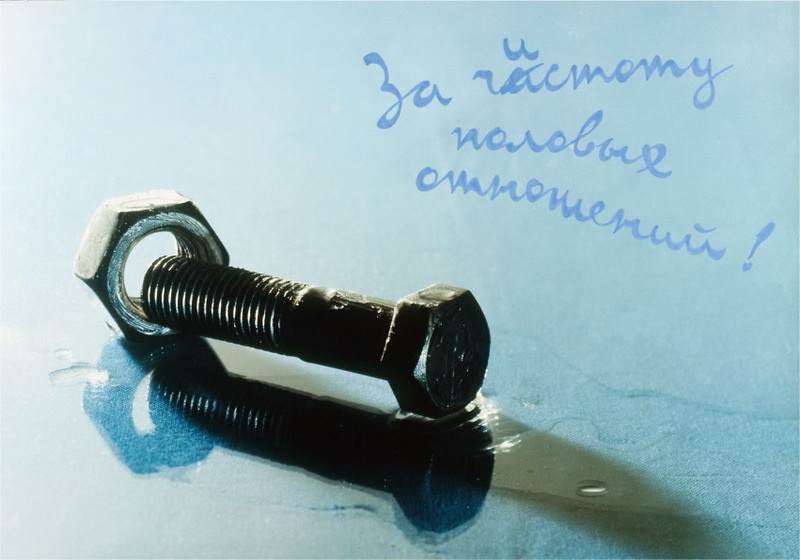 За чистоту
половых
отношений!